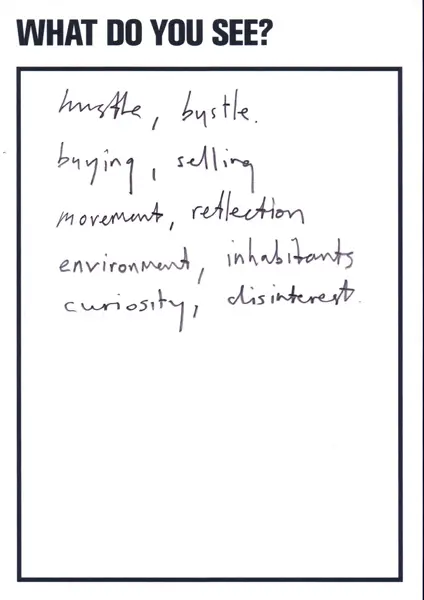 WHAT DO YOU SEE?
hustle, bustle.
buying, selling
movement, reflection
environment, inhabitants
curiosity, disinterest.